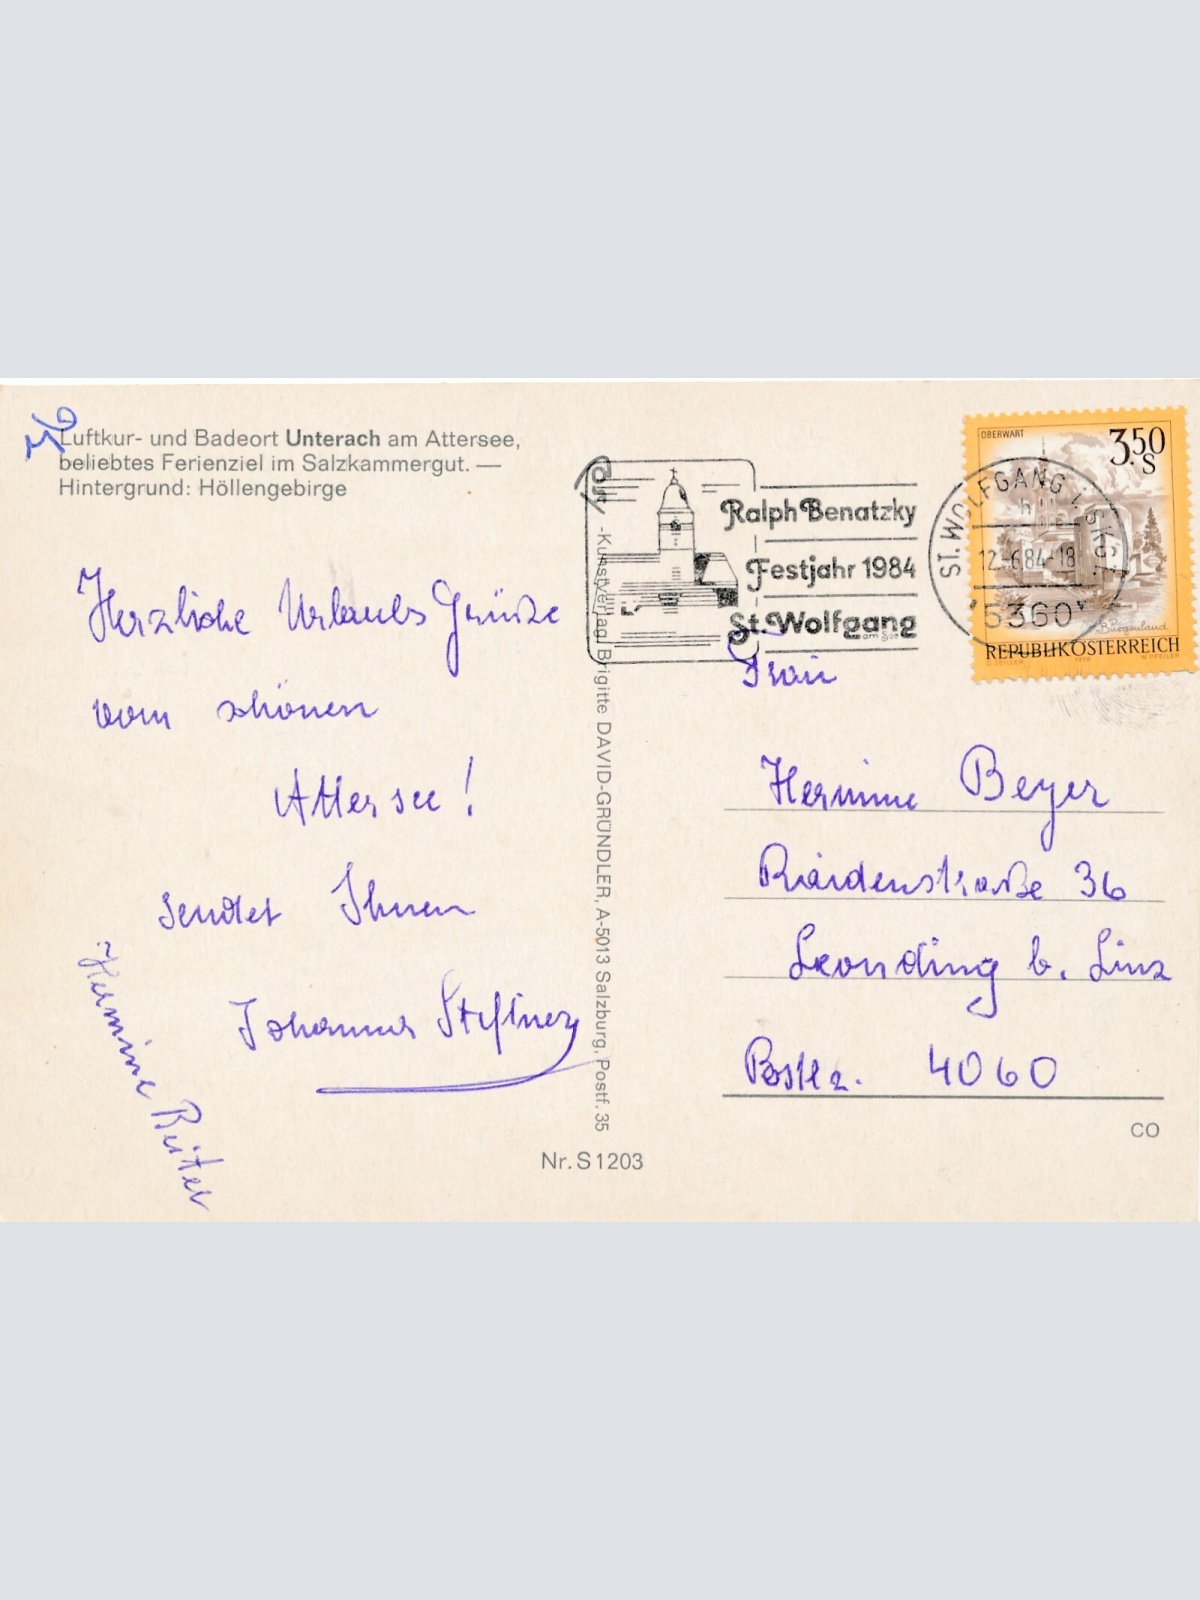 Luftkur- und Badeort Unterach am Attersee,
beliebtes Ferienziel im Salzkammergut. —
Hintergrund: Höllengebirge
Herzliche Urlaubs Grüße
vom schönen
Attersee!
sendet Ihnen
Johanna
Hermine Reiter
-Kunstverlag Brigitte DAVID-GRÜNDLER, A-5013 Salzburg, Postf. 35
Nr. S1203
Post
Ralph Benatzky
Festjahr 1984
St. Wolfgang
am See
ST. WOLFGANG i. SKGT.
h
12.-6.84-18
5360
OBERWART
3.50
S
Burgenland
REPUBLIK ÖSTERREICH
Frau
Hermine Beyer
36
Leonding b. Linz
Postlz. 4060
CO